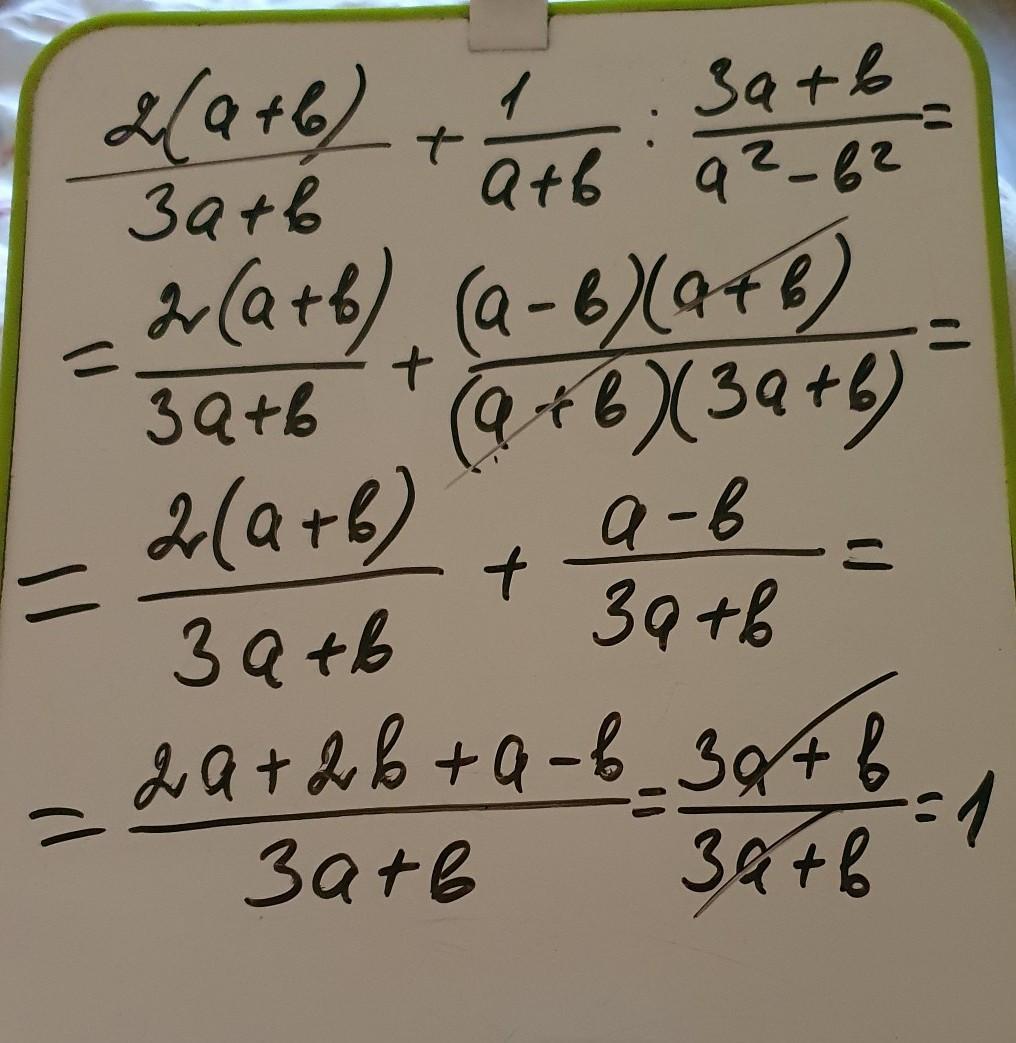 2(a+b)/(3a+b) + 1/(a+b) : (3a+b)/(a²-b²) =
= 2(a+b)/(3a+b) + (a-b)(a+b)/((a+b)(3a+b)) =
= 2(a+b)/(3a+b) + (a-b)/(3a+b) =
= (2a+2b+a-b)/(3a+b) = (3a+b)/(3a+b) = 1